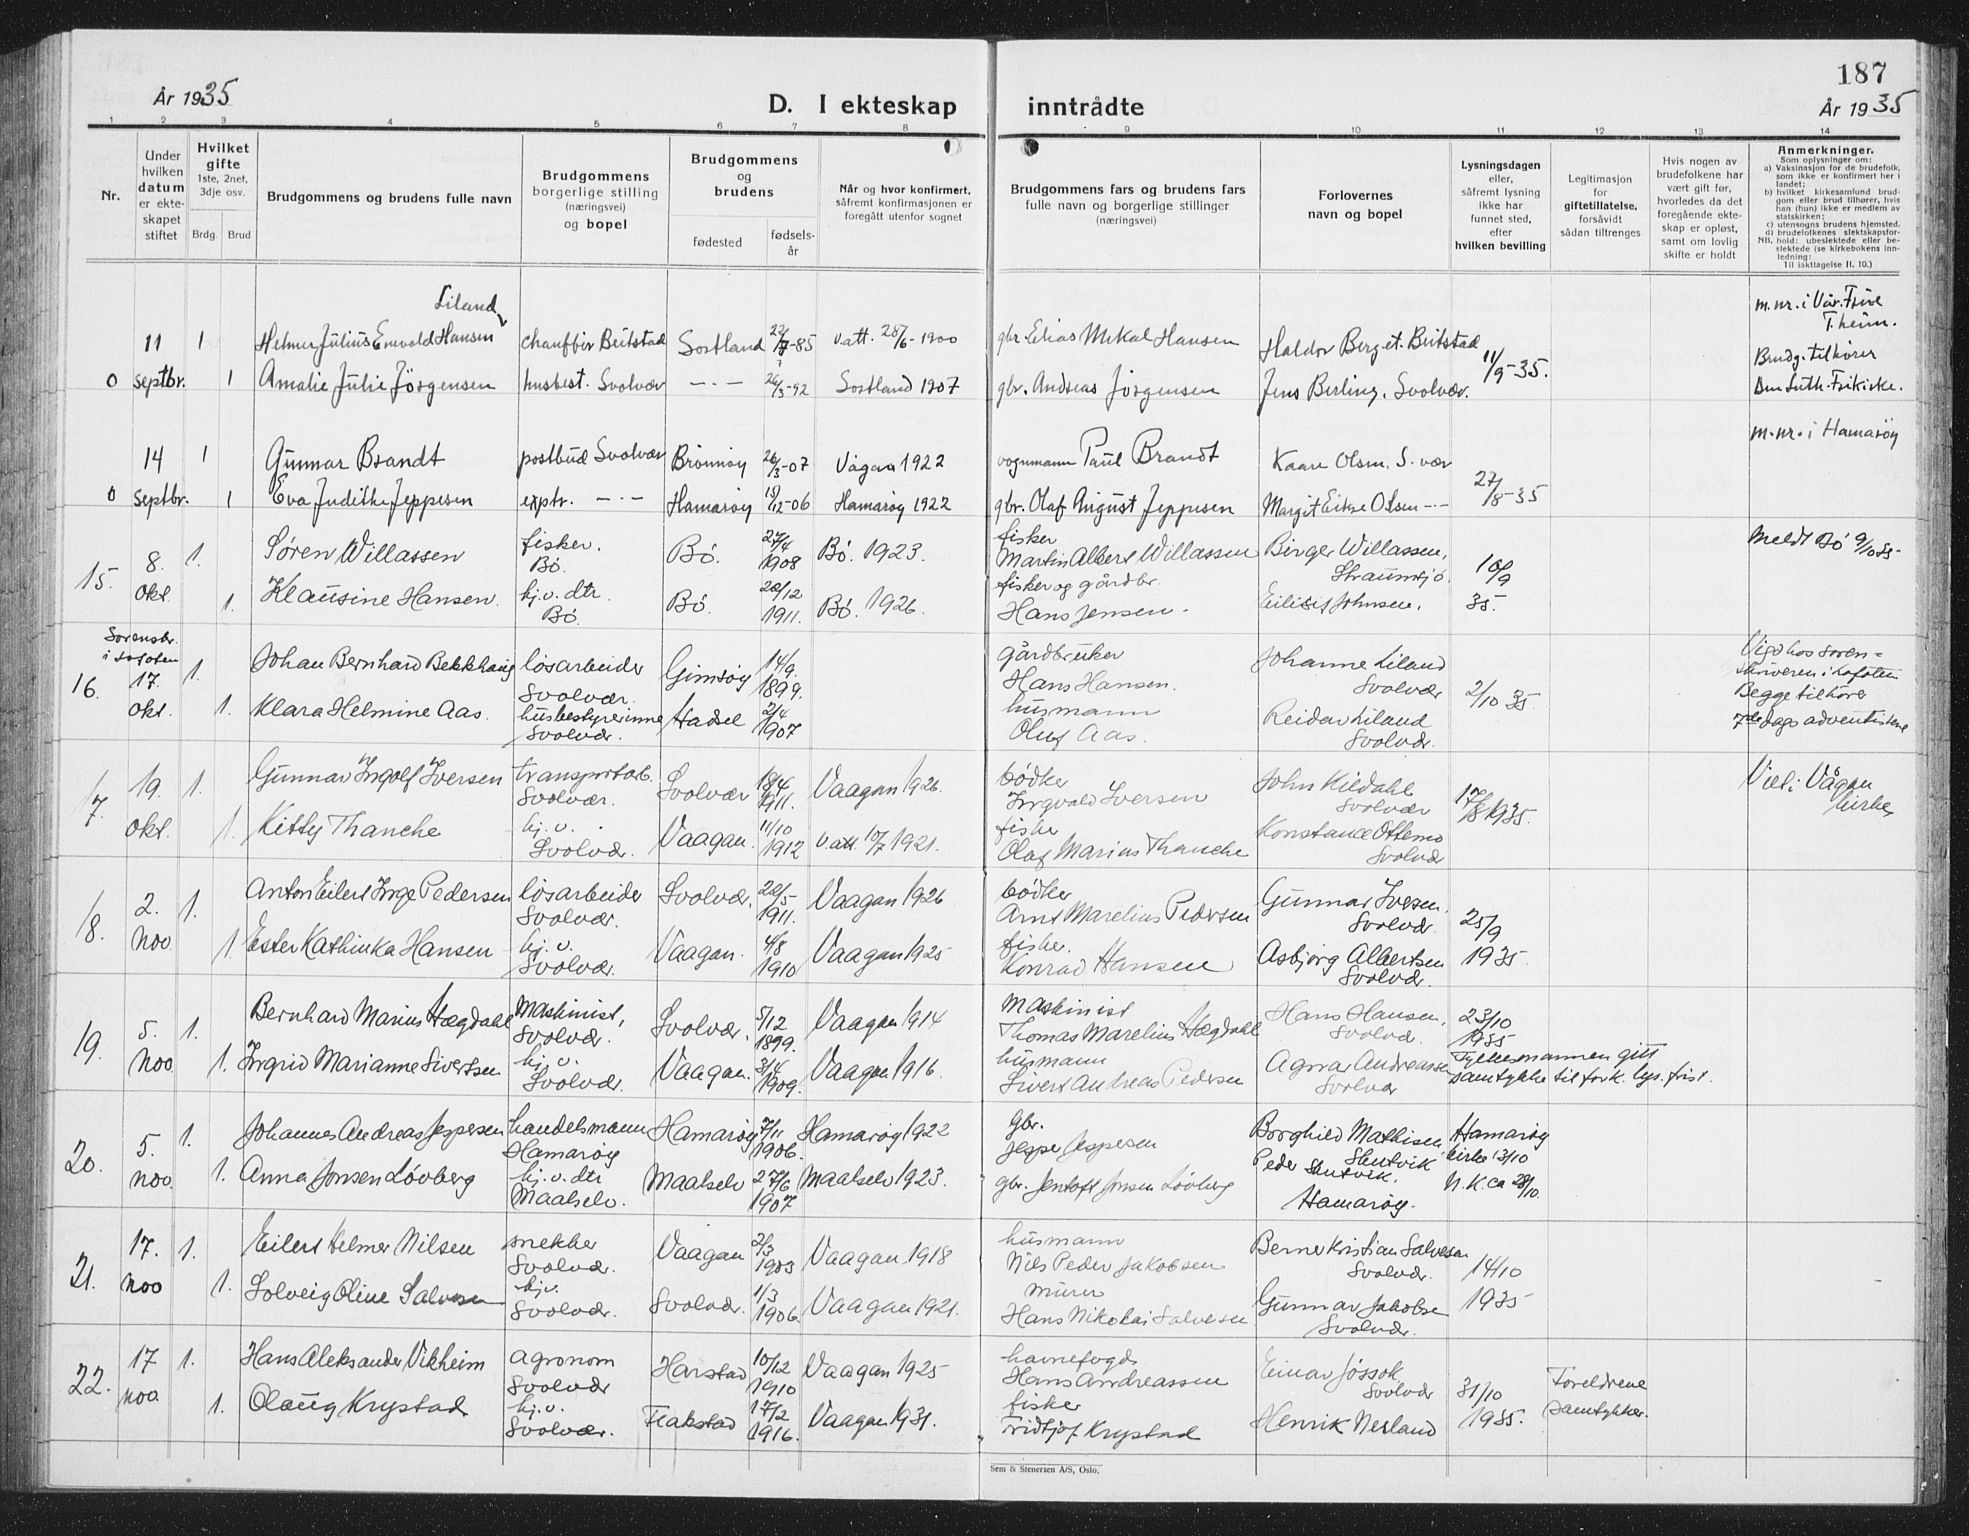 187
År 1935
D. I ekteskap inntrådte
År 1935
1 2 3 4 5 6 7 8 9 10 11 12 13 14
Nr.
Under
hvilken
datum
er ekte-
skapet
stiftet
Hvilket
gifte
1ste, 2net,
3dje osv.
Brdg. Brud
Brudgommens og brudens fulle navn
Brudgommens
borgerlige stilling
(næringsvei)
og bopel
Brudgommens
og
brudens
fødested
fødsels-
år
Når og hvor konfirmert,
såfremt konfirmasjonen er
foregått utenfor sognet
Brudgommens fars og brudens fars
fulle navn og borgerlige stillinger
(næringsvei)
Forlovernes
navn og bopel
Lysningsdagen
eller,
såfremt lysning
ikke har
funnet sted,
efter
hvilken bevilling
Legitimasjon
for
giftetillatelse,
forsåvidt
sådan tiltrenges
Hvis nogen av
brudefolkene har
vært gift før,
hvorledes da det
foregående ekte-
skap er opløst,
samt om lovlig
skifte er holdt
Anmerkninger.
Som oplysninger om:
a) Vaksinasjon for de brudefolk,
som ikke er konfirmert her i
landet;
b) hvilket kirkesamfund brud-
gom eller brud tilhører, hvis
han (hun) ikke er medlem av
statskirken;
c) utensogns brudens hjemsted.
d) brudefolkenes slektskapsfor-
NB. hold: ubeslektede eller be-
slektede (se kirkebokens inn-
ledning:
Til iakttagelse II. 10.)
Liland
11 1 Helmer Julius Enevold Hansen chauffør Beitstad Sortland 22/7-85 v.att. 28/6-1900 gbr. Elias Mekal Hansen Haldor Berg et. Beitstad 11/9-35. m.nr. i Vår Frue
T.heim.
0 septbr. 1 Amalie Julie Jörgensen husbest. Svolvær -"- 26/3-92 Sortland 1907 gbr. Andreas Jörgensen Jens Berling, Svolvær. Brudg. tilhører
Den Luth. Frikirke.
14 1 Gunnar Brandt postbud Svolvær Brønnøy 26/3-07 Vågan 1922 vognmann Paul Brandt Kaare Olsen. S.vær 27/8-35 m.nr. i Hamarøy
0 septbr. 1 Eva Judithe Jeppesen exptr. -"- Hamarøy 19/12-06 Hamarøy 1922 gbr. Olaf August Jeppesen Margit Olsen -"-
15. 8. 1. Søren Willassen fisker. Bø. Bø. 27/4 1908 Bø. 1923. fisker Martin Albert Willassen Birger Willassen, Straumsjø. 10/9 Meldt Bø 9/10 35
okt. 1. Klausine Hansen. hj.v. dtr. Bø. Bø. 20/12 1911. Bø. 1926. fisker og gårdbr. Hans Jensen. Johnsen. 35.
Sorenskr.
i Lofoten
16. 17. 1. Johan Bernhard Bekkhaug løsarbeider Svolvær. Gimsøy 14/9 1899. gårdbruker Hans Hansen. Johanne Liland Svolvær 2/10 35. Vigd hos soren=
skriveren i Lofoten
okt. 1. Klara Helmine Aas. husbestyrerinne Svolvær. Hadsel 2/4 1907 husmann Oluf Aas. Reidar Liland Svolvær. Begge tilhører
7de dags adventistene
17. 19. 1. Gunnar Ingolf Iversen transportarb. Svolvær. Svolvær 18/4 1911. Vaagan 1926. bødker Ingvald Iversen John Kildahl Svolvær 17/8 1935. Viet i Vågan
kirke
okt. 1. Kitty Thanche hj.v. Svolvær. Vaagan. 11/10 1912 v.att. 10/7 1921. fisker Olaf Marius Thanche Konstance Ottemo Svolvær
18. 2. 1. Anton Eilert Inge Pedersen løsarbeider Svolvær. Svolvær. 20/5 1911. Vaagan 1926 bødker Arnt Marelius Pedersen Gunnar Iversen. Svolvær. 25/9
nov 1. Ester Kathinka Hansen hj.v. Svolvær. Vaagan. 4/8 1910 Vaagan 1925 fisker. Konrad Hansen Asbjørg Albertsen Svolvær. 1935
19. 5. 1. Bernhard Marius Hægdahl Maskinist, Svolvær. Svolvær. 5/12 1899. Vaagan 1914 Maskinist Thomas Marelius Hægdahl Hans Hansen, Svolvær. 23/10 1935
nov. 1. Ingrid Marianne Sivertsen hj.v. Svolvær. Vaagan. 3/4 1909. Vaagan 1916. husmann Sivert Andreas Pedersen Agnar Andreassen Svolvær Fylkesmannen gitt
samtykke til fork. lys. frist.
20. 5. 1. Johannes Andreas Jeppesen handelsmann Hamarøy Hamarøy 7/11 1906. Hamarøy 1922 gbr. Jeppe Jeppesen Borghild Mathisen, Skutvik Hamarøy kirke 13/10
nov. 1. Anna Jonsen Løvberg hj.v. dtr Maalselv. Maalselv 27/6 1907 Maalselv 1923. gbr. Jentoft Jonsen Løvberg Peder Skutvik. Hamarøy. N.K. ca 28/10.
21. 17. 1. Eilert Helmer Nilsen snekker Svolvær. Vaagan 2/3 1903 Vaagan 1918 husmann Nils Peder Jakobsen Berner Kristian Salvesen Svolvær. 14/10
nov 1. Solveig Oline Salvesen hj.v. Svolvær. Svolvær. 1/3 1906. Vaagan 1921. murer Hans Nikolai Salvesen Gunnar Jakobse Svolvær. 1935
22. 17 1. Hans Aleksander Vikheim agronom Svolvær Harstad 10/12 1910 Vaagan 1925 havnefogd Hans Andreassen Einar Jøssok Svolvær 31/10 Foreldrene
nov. 1. Olaug Krystad hj.v. Svolvær. Flakstad 17/2 1916. Vaagan 1931. fisker Fridtjof Krystad Henrik Nerland 1935. samtykker.
Sem & Stenersen A/S, Oslo.